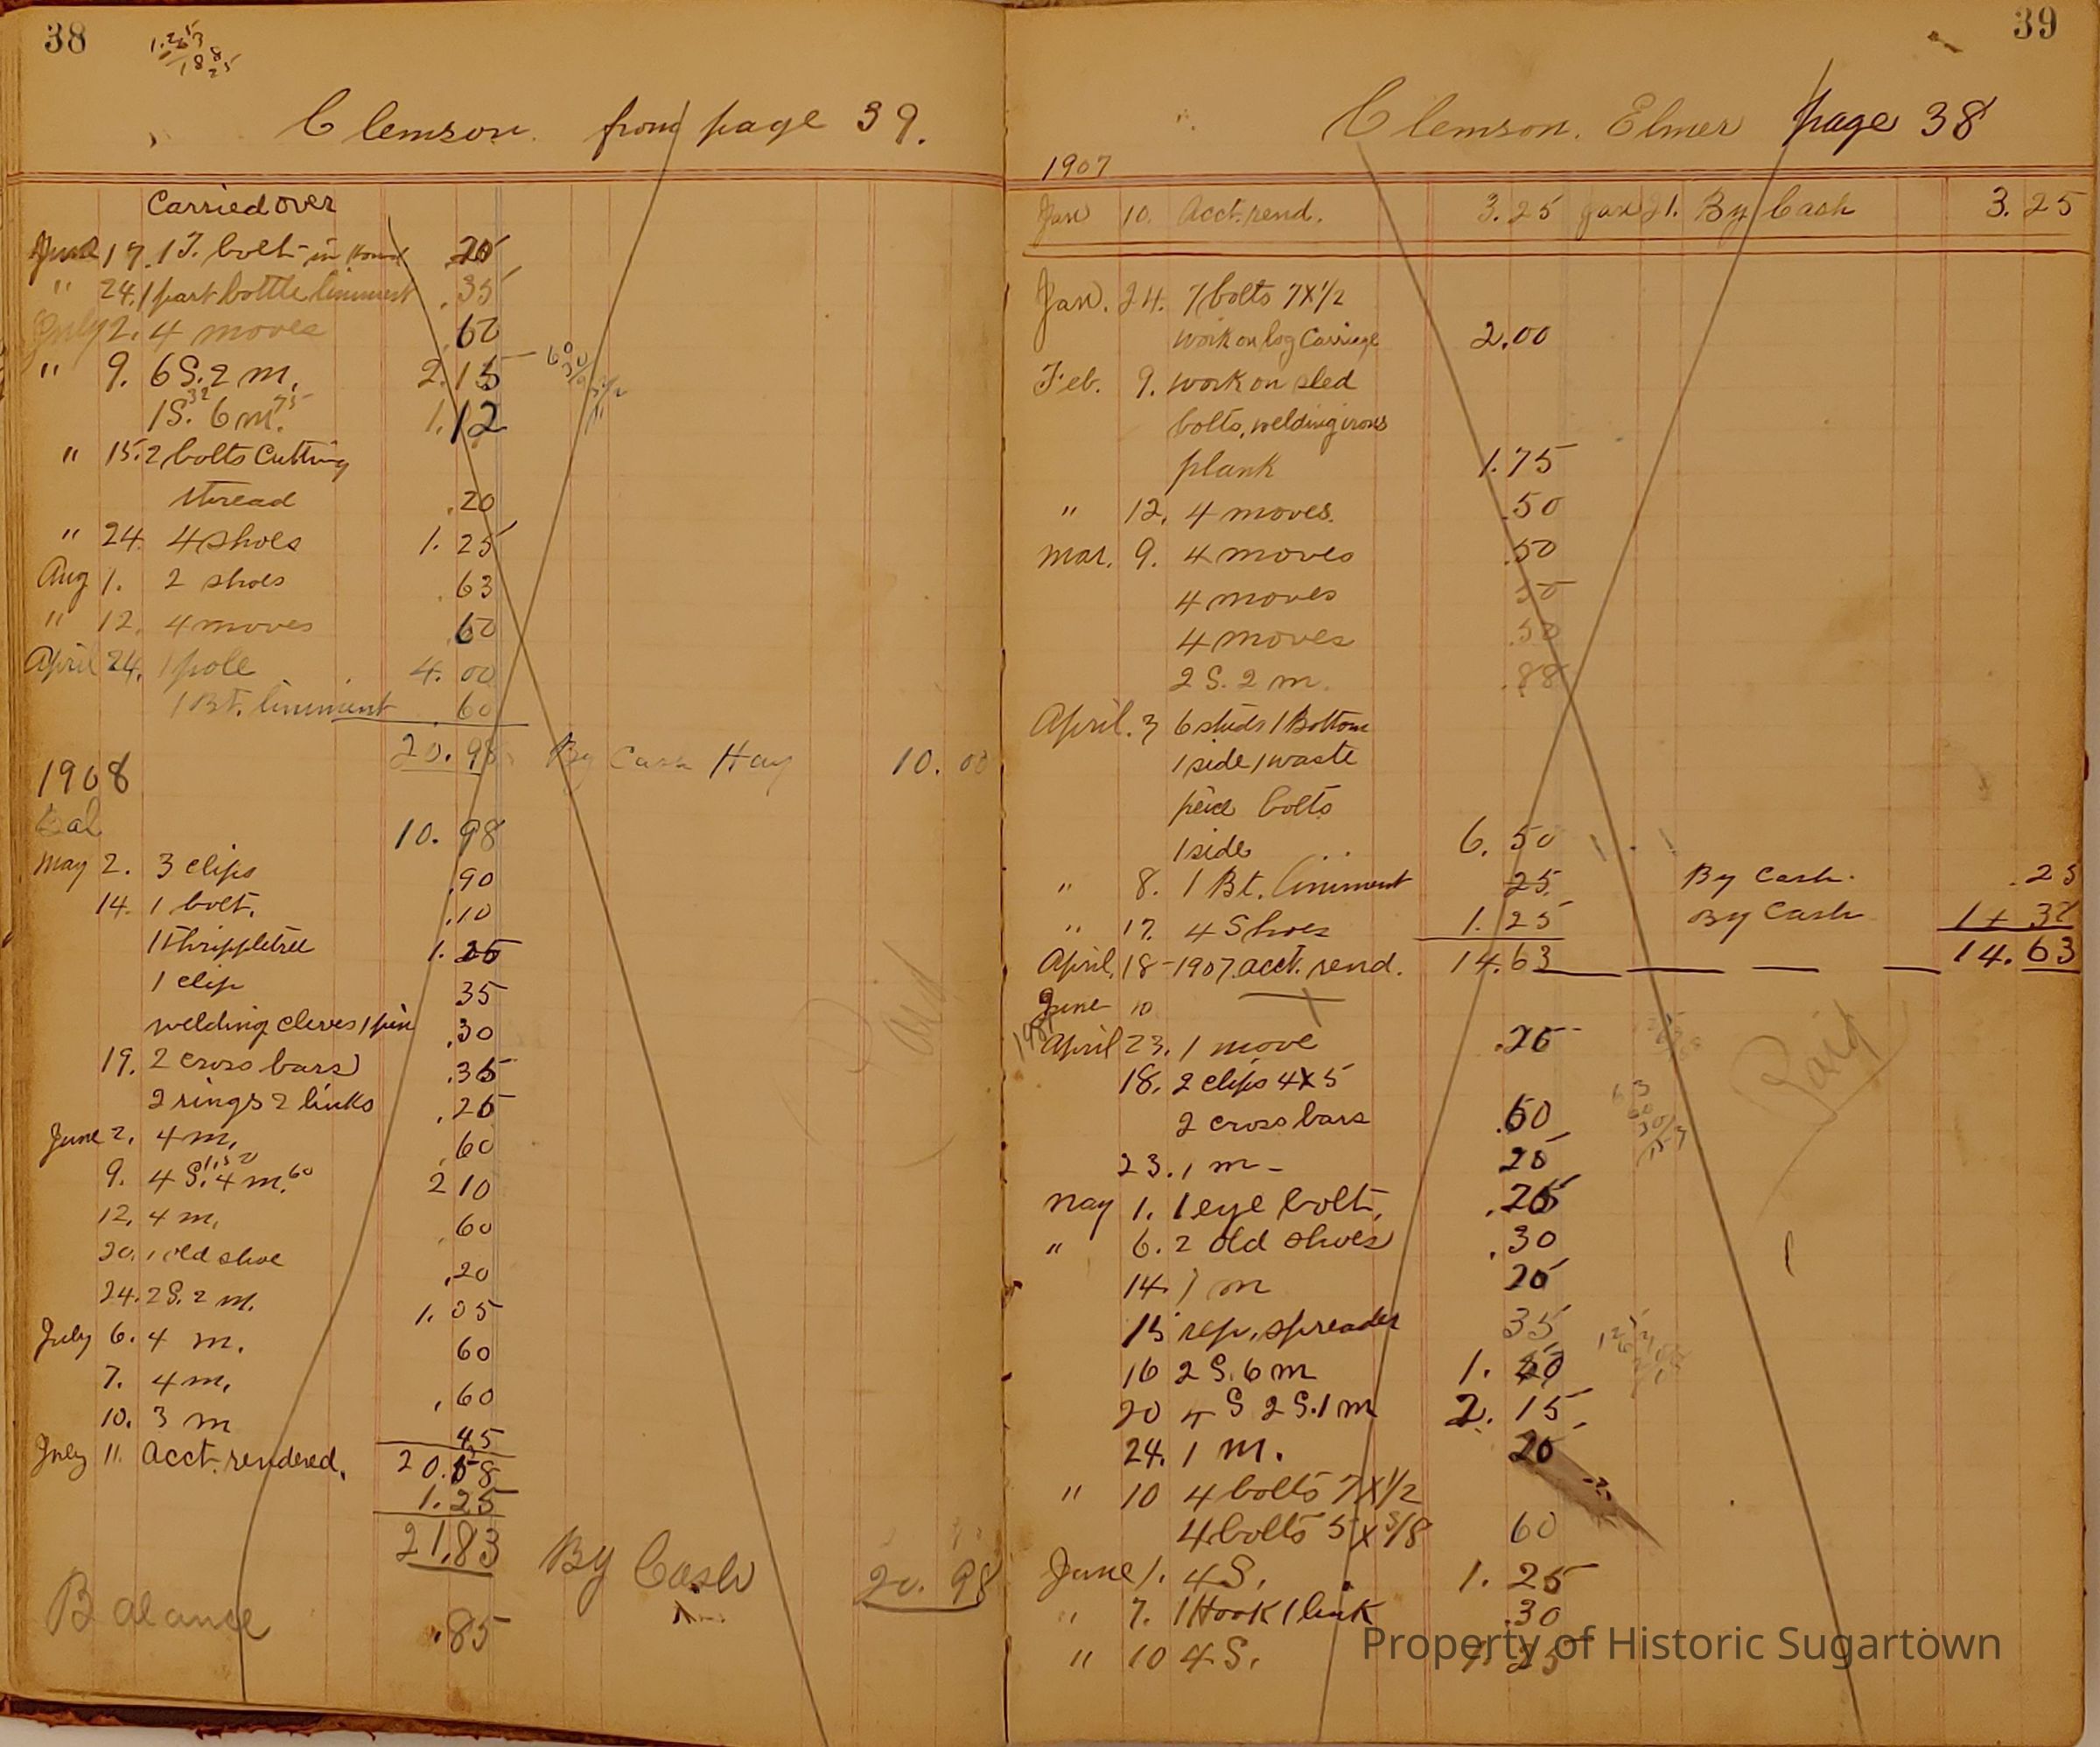 38
Clemson from page 39.
Carried over
June 17. 1 T. bolt in .20
" 24. 1 part bottle liniment .35
July 2. 4 moves .60
" 9. 6 S. 2 m. 2.15
1 S. 32 6 m. 75 1.12
" 15. 2 bolts Cutting
thread .20
" 24. 4 shoes 1.25
Aug 1. 2 shoes .63
" 12. 4 moves .60
April 24. 1 pole 4.00
1 Bt. liniment .60
20.98 By Cash Hay 10.00
1908
Bal 10.98
May 2. 3 clips .90
14. 1 bolt. .10
1 thrippletree 1.25
1 clip 35
welding cleves 1 pin .30
19. 2 cross bars .35
2 rings 2 links .25
June 2. 4 m. .60
9. 4 S. 1.50 4 m. 60 2 10
12. 4 m. .60
20. 1 old shoe .20
24. 2 S. 2 m. 1.05
July 6. 4 m. 60
7. 4 m. .60
10. 3 m 45
July 11. Acct. rendered. 20.58
1.25
21.83 By Cash 20.98
Balance .85
39
Clemson. Elmer page 38
1907
Jan 10. Acct. rend. 3.25 Jan 21. By Cash 3.25
Jan. 24. 7 bolts 7x1/2
work on log Carriage 2.00
Feb. 9. work on sled
bolts, welding irons
plank 1.75
" 12. 4 moves. .50
Mar. 9. 4 moves .50
4 moves 50
4 moves .50
2 S. 2 m. .88
April. 3 6 studs 1 Bottom
1 side 1 waste
peice bolts
1 side 6.50
" 8. 1 Bt. liniment 25. By Cash. .25
" 17. 4 Shoes 1.25 By Cash 14 38
April. 18-1907. acct. rend. 14.63 14.63
June 10
April 23. 1 move .25
18. 2 clips 4x5
2 cross bars .60
23. 1 m - 20
May 1. 1 eye bolt. .25
" 6. 2 old shoes .30
14. 1 m 20
15 rep. spreader 35
16 2 S. 6 m 1.
20 4 S 2 S. 1 m 2.15
24. 1 m. 20
" 10 4 bolts 7x1/2
4 bolts 5x5/8 60
June 1. 4 S. 1.25
" 7. 1 Hook 1 link .30
" 10 4 S. 1.25
Paid
Property of Historic Sugartown